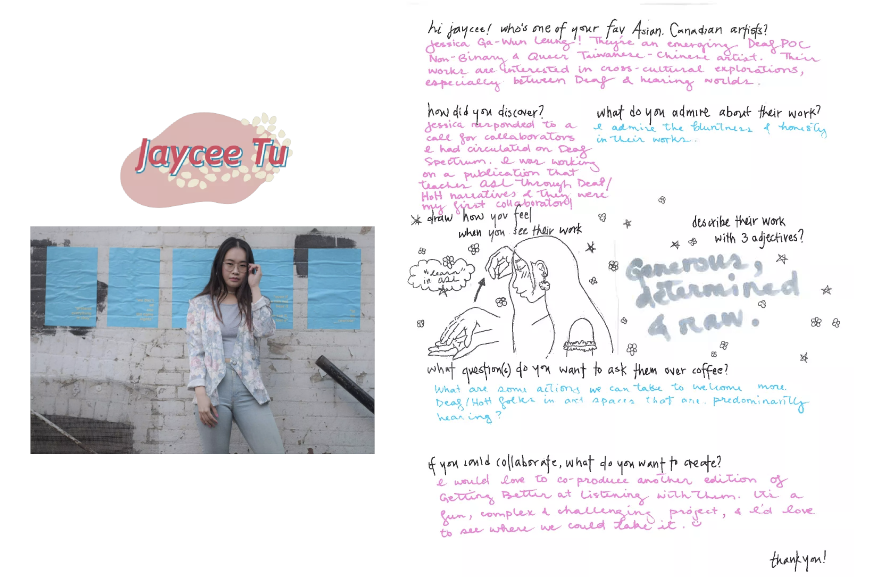 Jaycee Tu
hi jaycee! who's one of your fav Asian-Canadian artists?
Jessica Ga-Wun Leung! They're an emerging Deaf POC
Non-Binary & Queer Taiwanese-Chinese artist. Their
works are interested in cross-cultural explorations,
especially between Deaf & hearing worlds.
how did you discover?
Jessica responded to a
call for collaborators
I had circulated on Deaf
Spectrum. I was working
on a publication that
teaches ASL through Deaf/
HoH narratives & they were
my first collaborator!
what do you admire about their work?
I admire the bluntness & honesty
in their works.
draw how you feel
when you see their work
"learn"
in ASL
describe their work
with 3 adjectives?
Generous,
determined
& raw.
what question(s) do you want to ask them over coffee?
What are some actions we can take to welcome more
Deaf/HoH folks in art spaces that are predominantly
hearing?
if you could collaborate, what do you want to create?
I would love to co-produce another edition of
Getting Better at Listening with them. It's a
fun, complex & challenging project, & I'd love
to see where we could take it.
thank you!